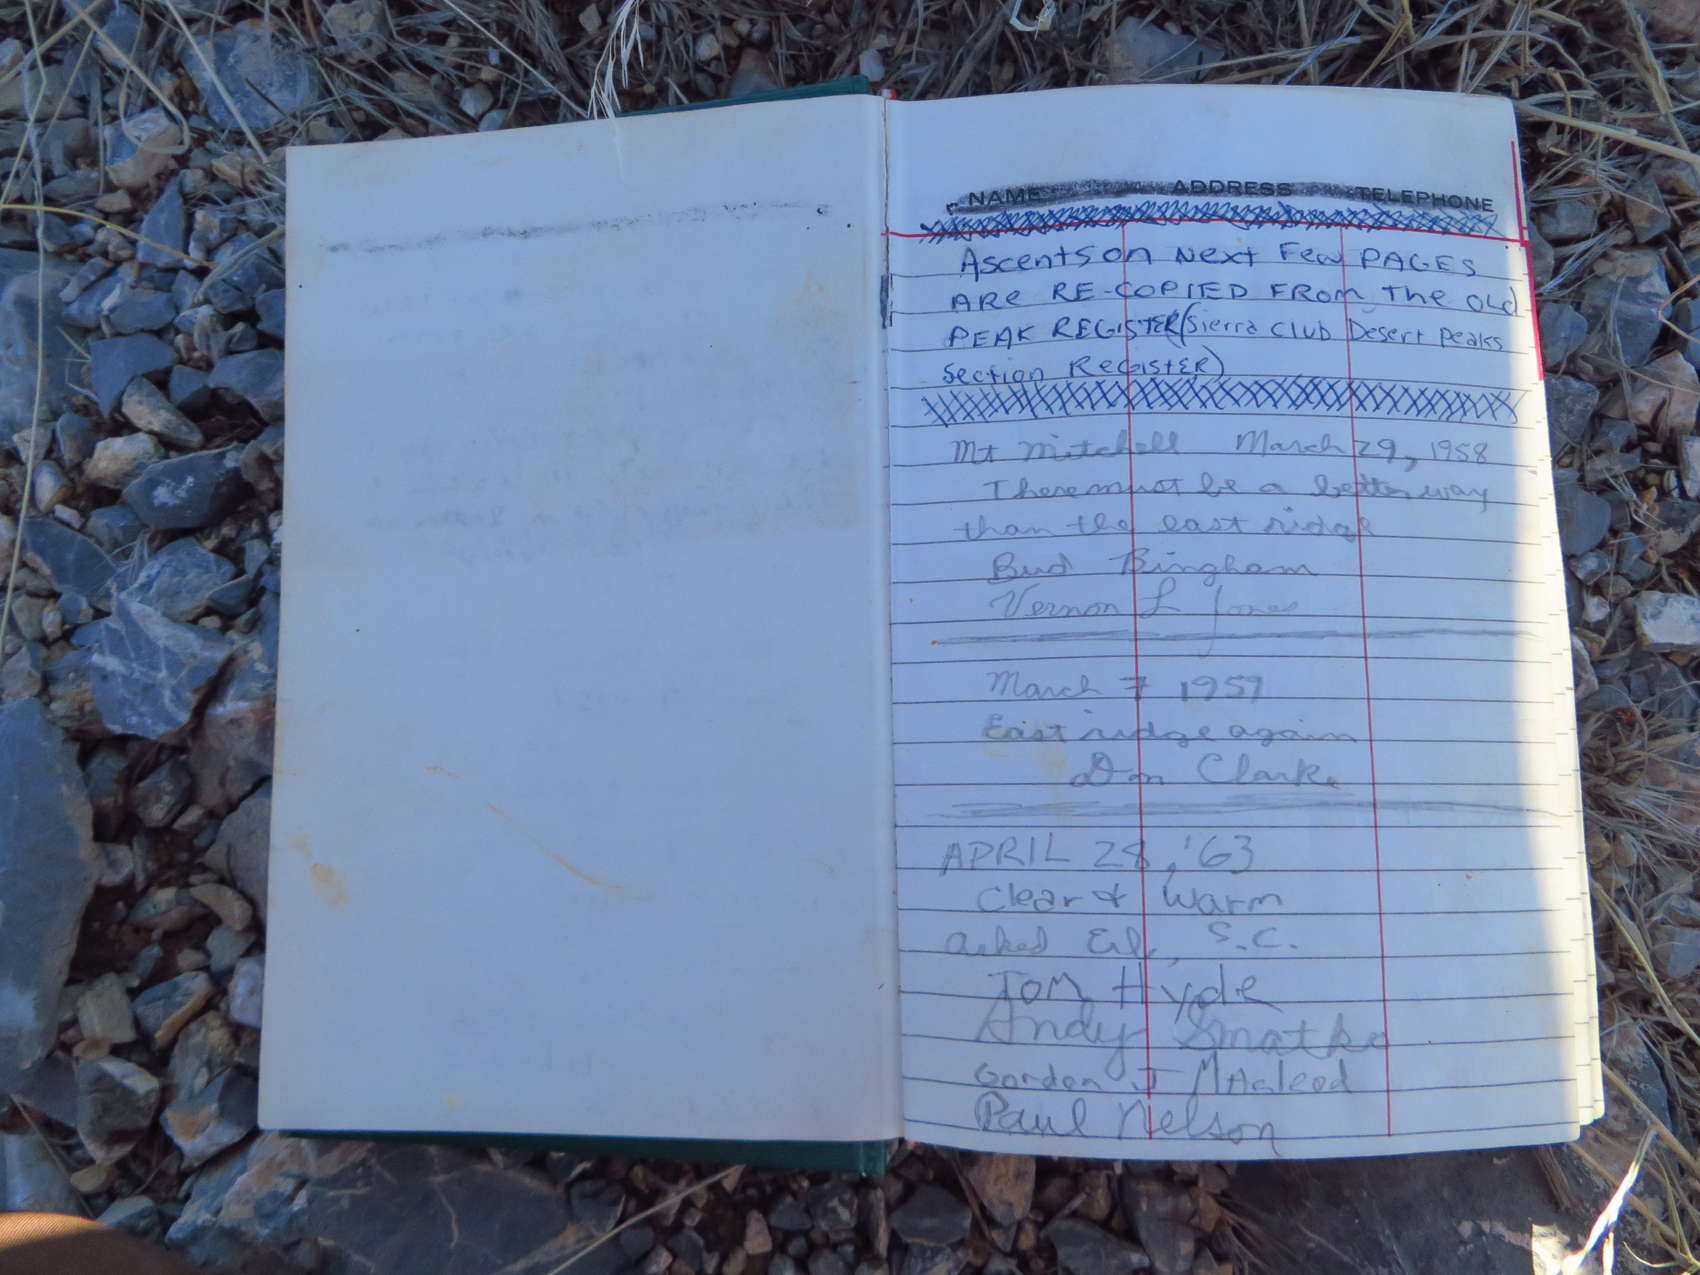 NAME ADDRESS TELEPHONE
Ascents on Next Few PAGES
ARe RE-COPIED FROM The OLD
PEAK REGISTER (Sierra Club Desert Peaks
Section RegistER)
Mt Mitchell March 29, 1958
There must be a better way
than the east ridge
Bud Bingham
Vernon L Jones
March 7 1959
East ridge again
Don Clarke
APRIL 28, '63
Clear & Warm
S.C.
Tom Hyde
Andy Smatko
Gordon J MAcleod
Paul Nelson